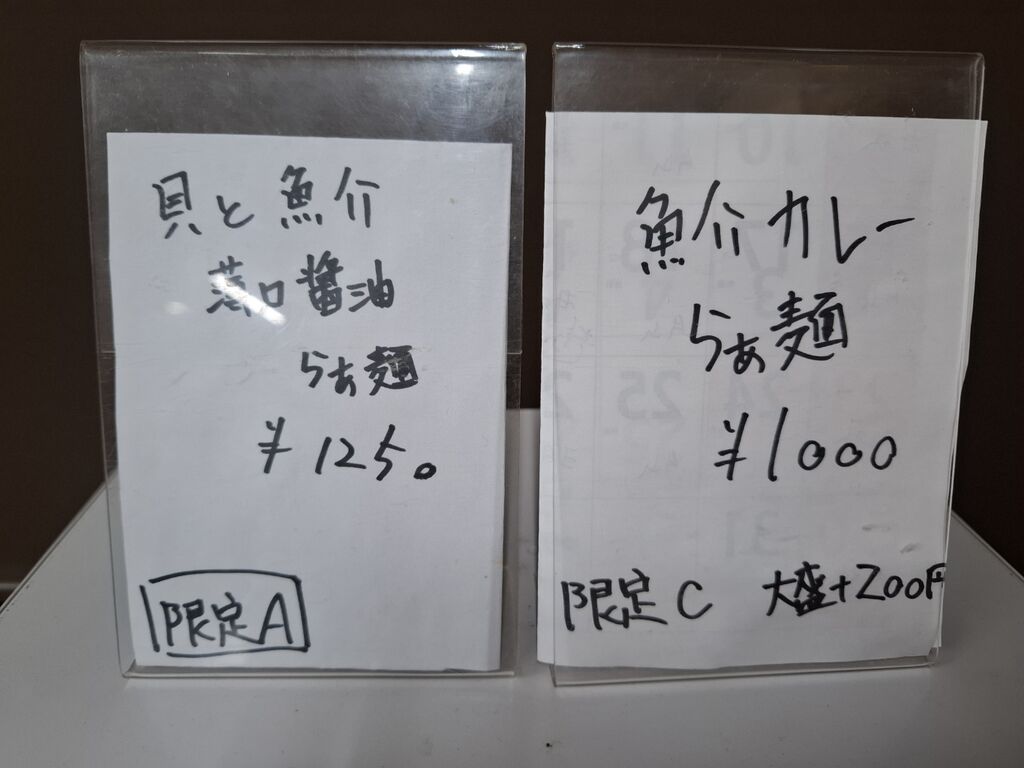 貝と魚介
薄口醤油
らぁ麺
¥1250
限定A
魚介カレー
らぁ麺
¥1000
限定C 大盛+200円